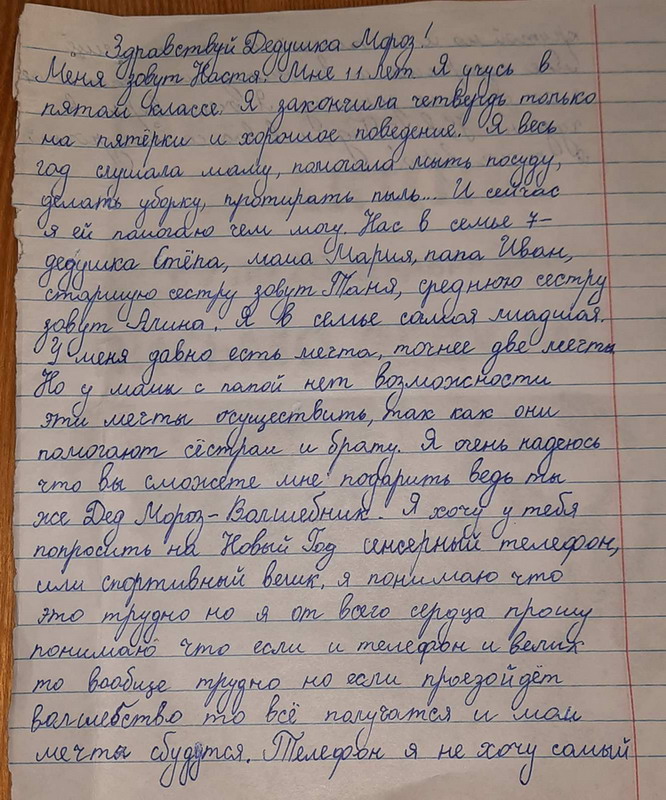 Здравствуй Дедушка Мороз!
Меня зовут Настя. Мне 11 лет Я учусь в
пятом классе. Я закончила четвердь только
на пятёрки и хорошое поведение. Я весь
год слушала маму, помогала мыть посуду,
делать уборку, протирать пыль... И сейчас
я ей помогаю чем могу. Нас в семье 7-
дедушка Стёпа, мама Мария, папа Иван,
старшую сестру зовут Таня, среднюю сестру
зовут Алина. Я в семье самая младшая.
У меня давно есть мечта, точнее две мечты
Но у мамы с папой нет возможности
эти мечты осуществить, так как они
помогают сёстрам и брату. Я очень надеюсь
что вы сможете мне подарить ведь ты
же Дед Мороз-Волшебник. Я хочу у тебя
попросить на Новый Год сенсерный телефон,
или спортивный велик, я понимаю что
это трудно но я от всего сердца прошу
понимаю что если и телефон и велик
то вообще трудно но если проезойдёт
волшебство то всё получатся и мои
мечты сбудутся. Телефон я не хочу самый